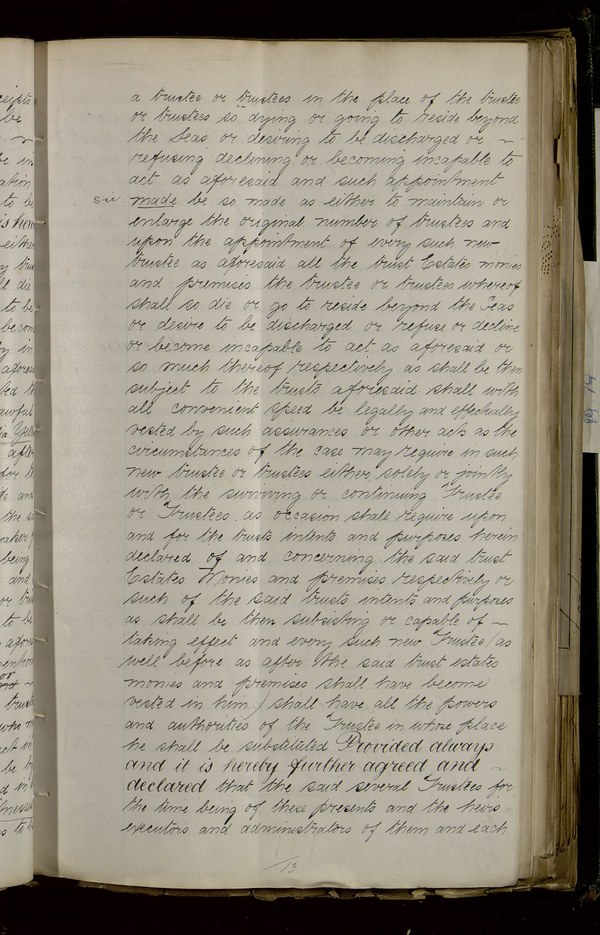 a trustee or trustees in the place of the trustee
or trustees so dying or going to reside beyond
the Seas or desiring to be discharged or ~
refusing declining or becoming incapable to
act as aforesaid and such appointment
sic made be so made as either to maintain or
enlarge the original number of trustees and
upon the appointment of every such new
trustee as aforesaid all the trust Estates monies
and premises the trustee or trustees whereof
shall so die or go to reside beyond the Seas
or desire to be discharged or refuse or decline
or become incapable to act as aforesaid or
so much thereof respectively as shall be then
subject to the trusts aforesaid shall with
all convenient speed be legally and effectually
vested by such assurances or other acts as the
circumstances of the case may require in such
new trustee or trustees either solely or jointly
with the surviving or continuing Trustee
or Trustees as occasion shall require upon
and for the trusts intents and purposes herein
declared of and concerning the said trust
Estates Monies and premises respectively or
such of the said trusts intents and purposes
as shall be then subsisting or capable of ~
taking effect and every such new Trustee (as
well before as after the said trust estates
monies and premises shall have become
vested in him) shall have all the powers
and authorities of the Trustee in whose place
he shall be substituted Provided always
and it is hereby further agreed and ~
declared that the said several Trustees for
the time being of these presents and the heirs
executors and administrators of them and each
13